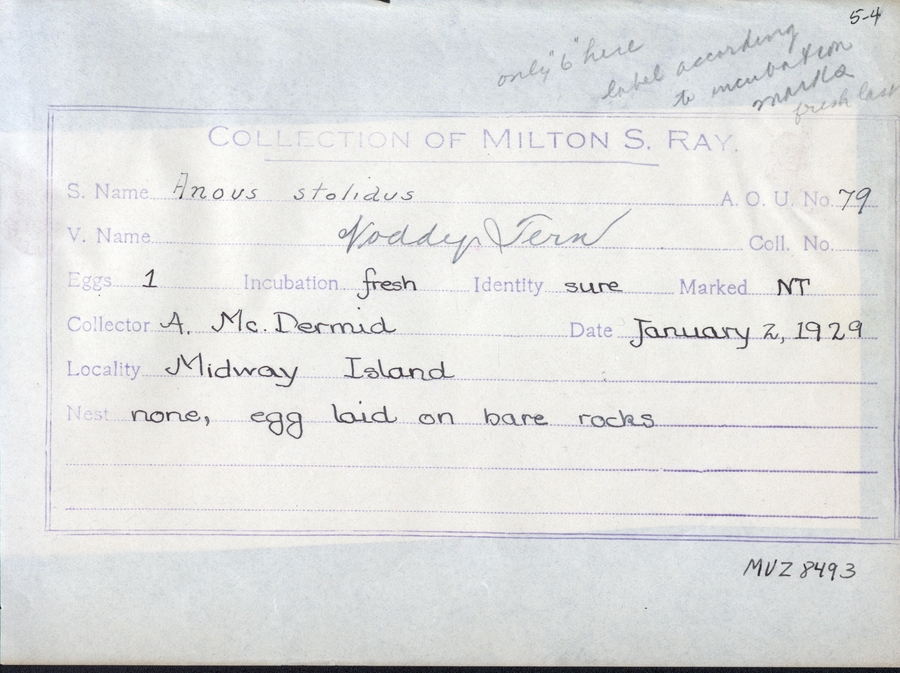 5-4
only "6" here
label according
to incubation
marks
fresh last
COLLECTION OF MILTON S. RAY.
S. Name Anous stolidus A. O. U. No. 79
V. Name Noddy Tern Coll. No.
Eggs 1 Incubation fresh Identity sure Marked NT
Collector A. Mc. Dermid Date January 2, 1929
Locality Midway Island
Nest none, egg laid on bare rocks
MVZ 8493